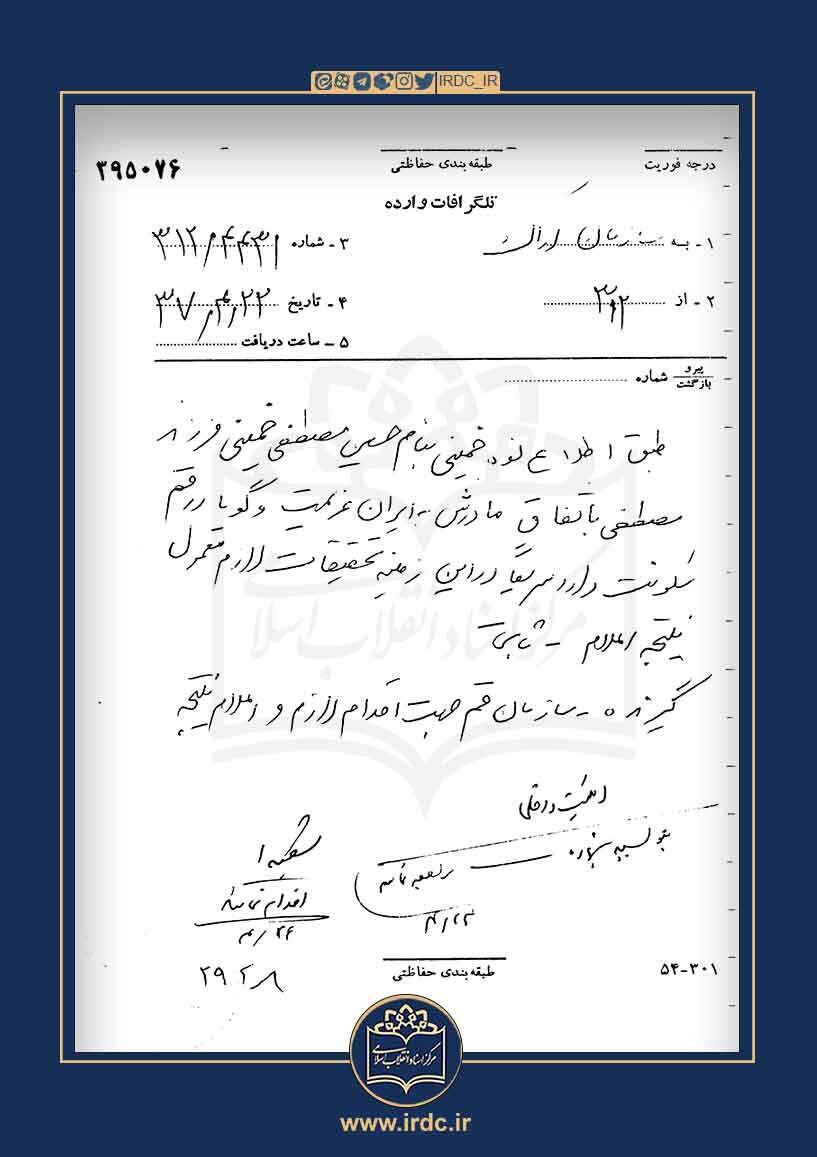 IRDC_IR
درجه فوریت
طبقه‌بندی حفاظتی
۳۹۵۰۷۶
تلگرافات وارده
۱ - به سازمان اراک
۳ - شماره ۳۱۲/۴۴۳۱
۲ - از ۳۱۲
۴ - تاریخ ۳۷/۴/۲۲
۵ - ساعت دریافت
پیرو
بازگشت
شماره
طبق اطلاع نوه خمینی بنام حسین مصطفی خمینی فرزند
مصطفی باتفاق مادرش به ایران عزیمت و گویا در قم
سکونت دارد سریعاً در این زمینه تحقیقات لازم معمول
نتیجه اعلام - ثابتی
گیرنده - سازمان قم جهت اقدام لازم و اعلام نتیجه
امنیت داخلی
۴/۲۳
اقدام نمائید
۴/۲۶
طبقه‌بندی حفاظتی
۵۴-۳۰۱
مرکز اسناد انقلاب اسلامی
www.irdc.ir